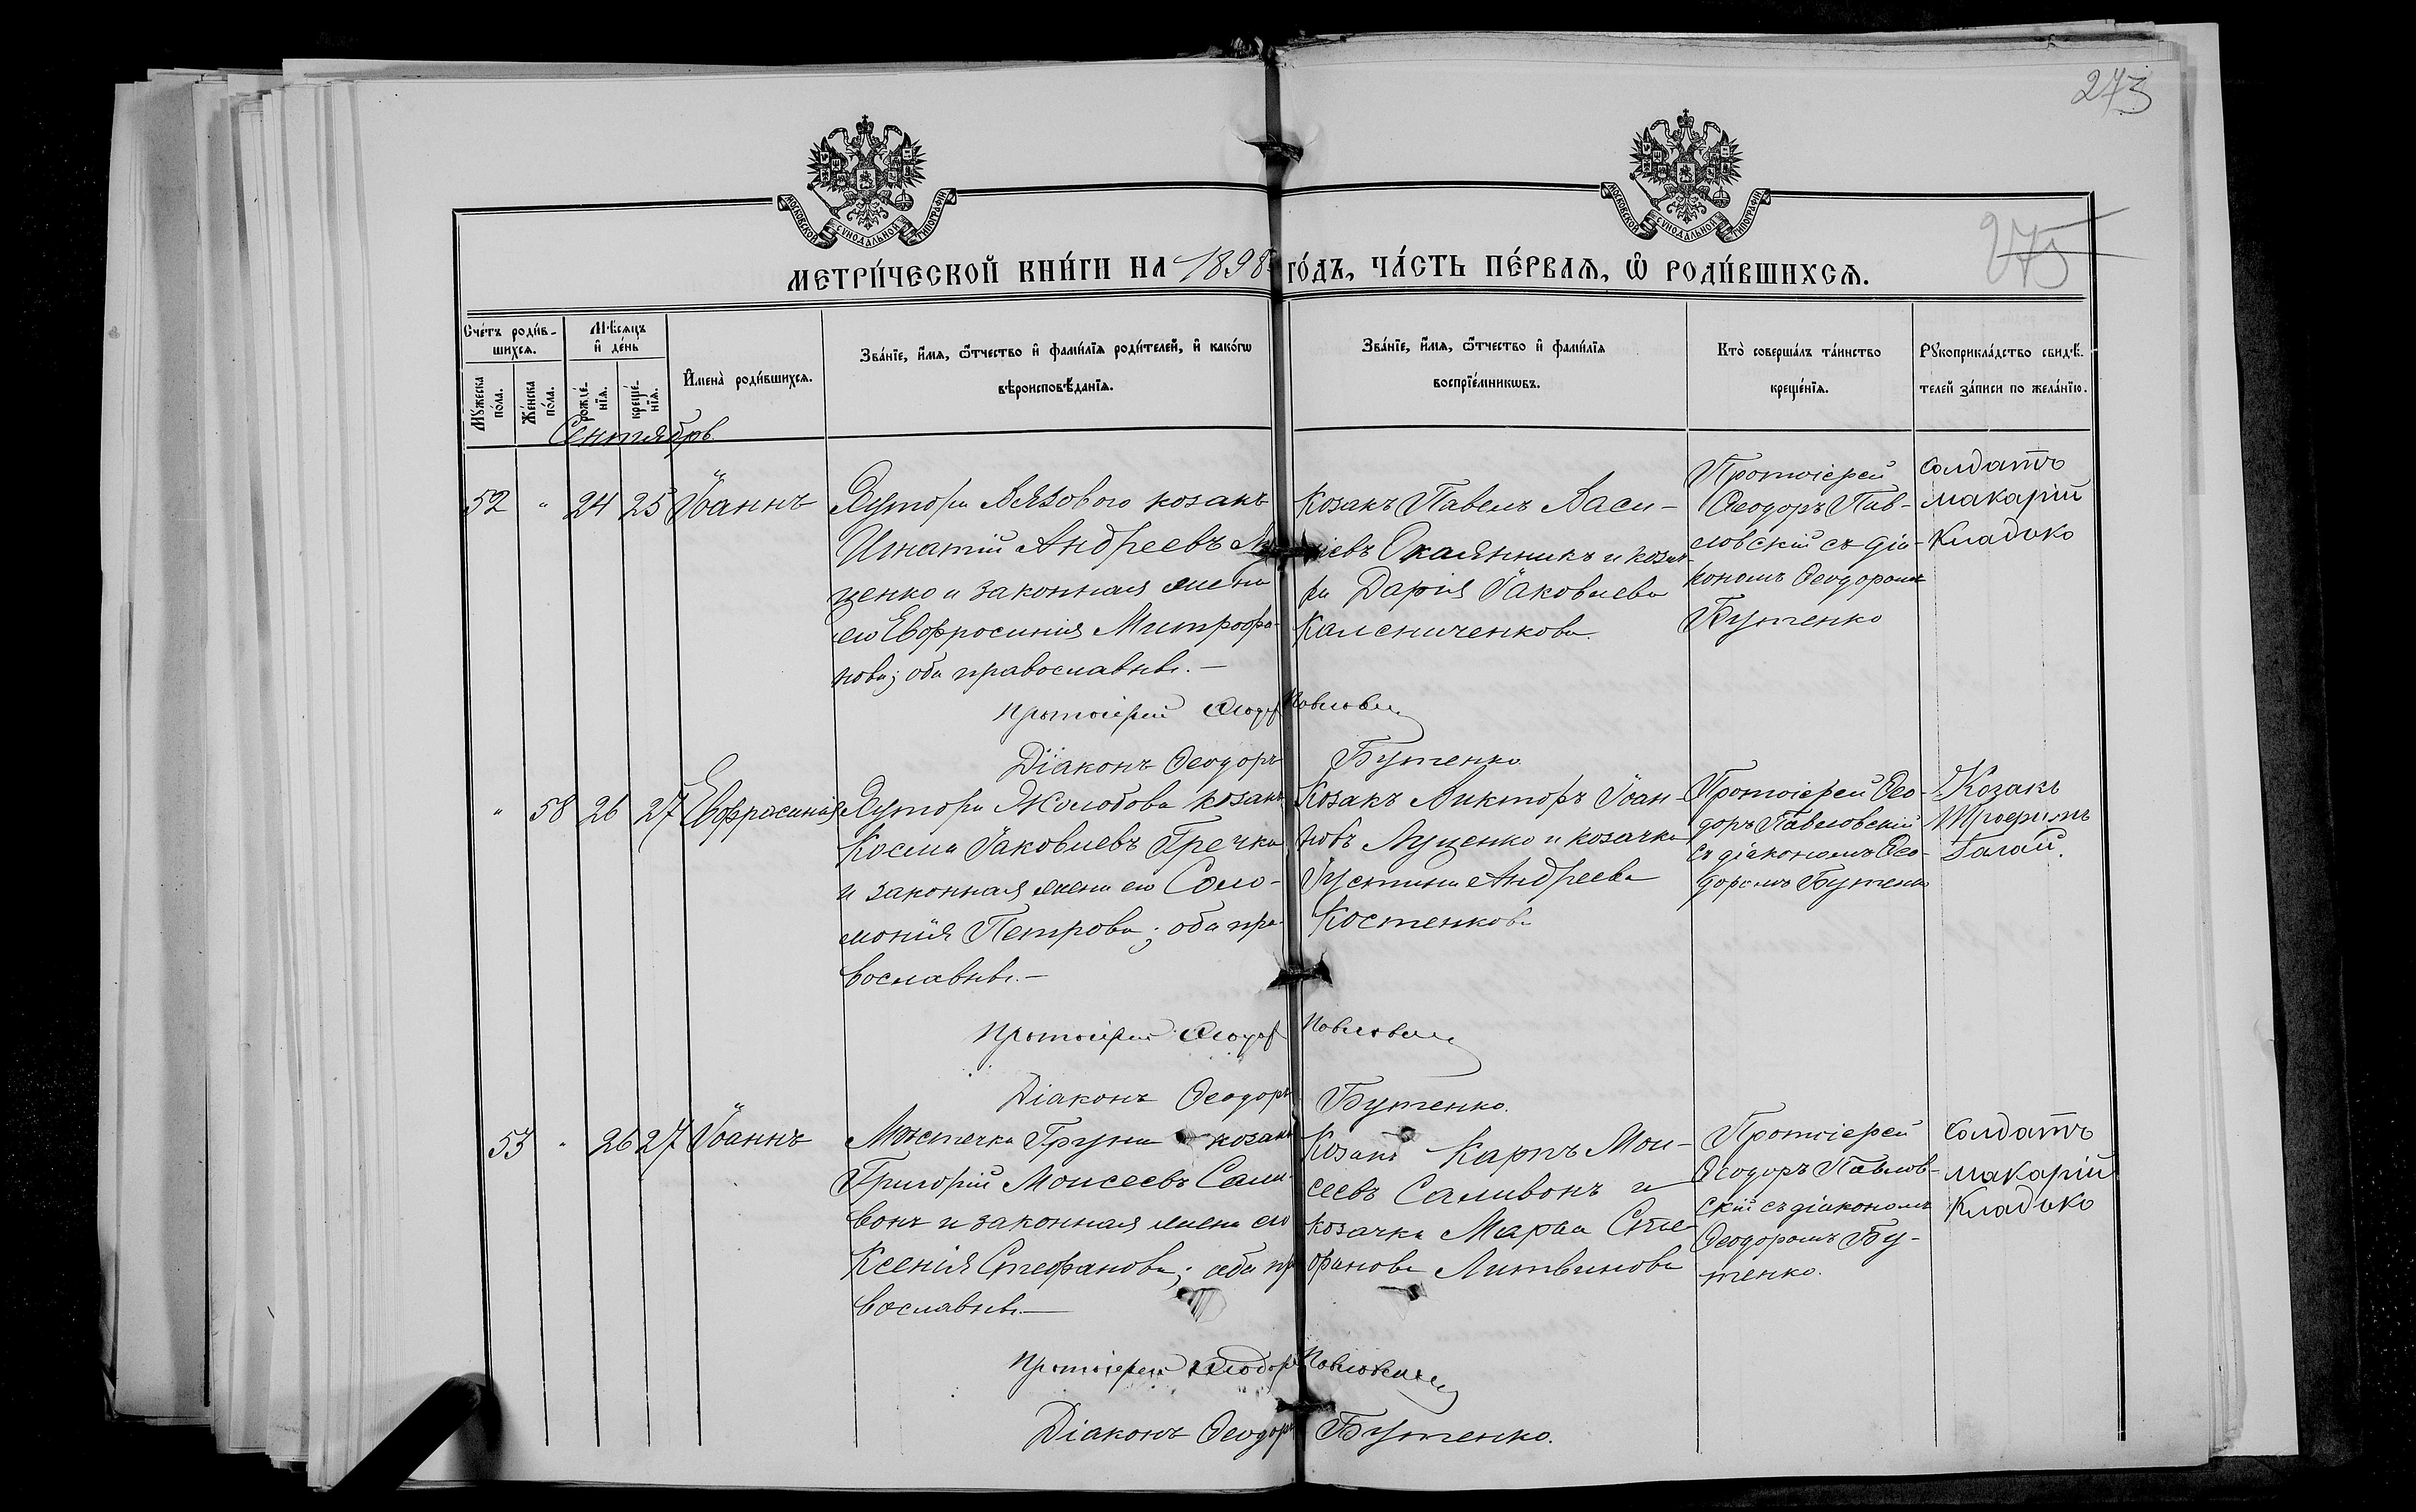 273
275
МОСКОВСКОЙ СѴНОДАЛЬНОЙ ТИПОГРАФІИ
МОСКОВСКОЙ СѴНОДАЛЬНОЙ ТИПОГРАФІИ
МЕТРИ́ЧЕСКОЙ КНИ́ГИ НА 1898 ГО́ДЪ, ЧА́СТЬ ПЕ́РВАЯ, Ѡ҆ РОДИ́ВШИХСѦ.
Сче́тъ роди́в-
шихсѧ.
Мꙋ́жеска по́ла.
Же́нска по́ла.
Мѣ́сѧцъ и҆ де́нь
рожде́-нїѧ.
креще́-нїѧ.
И҆мена̀ роди́вшихсѧ.
Зва́нїе, и҆́мѧ, ѻ҆́тчество и҆ фами́лїѧ роди́телей, и҆ како́гѡ
вѣроисповѣ́данїѧ.
Зва́нїе, и҆́мѧ, ѻ҆́тчество и҆ фами́лїѧ
воспрїе́мникѡвъ.
Кто̀ соверша́лъ та́инство
креще́нїѧ.
Рꙋкоприкла́дство свидѣ́-
телей за́писи по жела́нїю.
Сентябрь
52 " 24 25 Іоаннъ
Хутора Вязового козакъ
Игнатій Андреевъ Лу
ценко и законная жена
его Евфросинія Митрофа-
нова; оба православные.—
Козакъ Павелъ Васи-
ліевъ Окаянникъ и козач-
ка Дарія Іаковлева
Калениченкова.
Протоіерей
Ѳеодоръ Пав-
ловскій съ діа-
кономъ Ѳеодоромъ
Бутенко
солдатъ
макарій
Кладько
Протоіерей Ѳеодор Павловскій
Діаконъ Ѳеодоръ Бутенко
" 58 26 27 Евфросинія
Хутора Жолобова козакъ
Косма Іаковлевъ Гречка
и законная жена его Соло-
монія Петрова; оба пра-
вославные.—
Козакъ Викторъ Іоан-
новъ Луценко и козачка
Іустина Андреева
Костенкова
Протоіерей Ѳео-
доръ Павловскій
съ діакономъ Ѳео-
доромъ Бутенко
Козакъ
Трофимъ
Галай.
Протоіерей Ѳеодор Павловскій
Діаконъ Ѳеодоръ Бутенко.
53 " 26 27 Іоаннъ
Мѣстечка Груни козакъ
Григорій Моисеевъ Сали-
вонъ и законная жена его
Ксенія Стефанова; оба пра
вославные.—
Козакъ Карпъ Мои-
сеевъ Саливонъ и
козачка Марѳа Сте-
фанова Литвинова
Протоіерей
Ѳеодоръ Павлов-
скій съ діакономъ
Ѳеодоромъ Бу-
тенко.
солдатъ
макарій
Кладько
Протоіерей Ѳеодоръ Павловскій
Діаконъ Ѳеодоръ Бутенко.